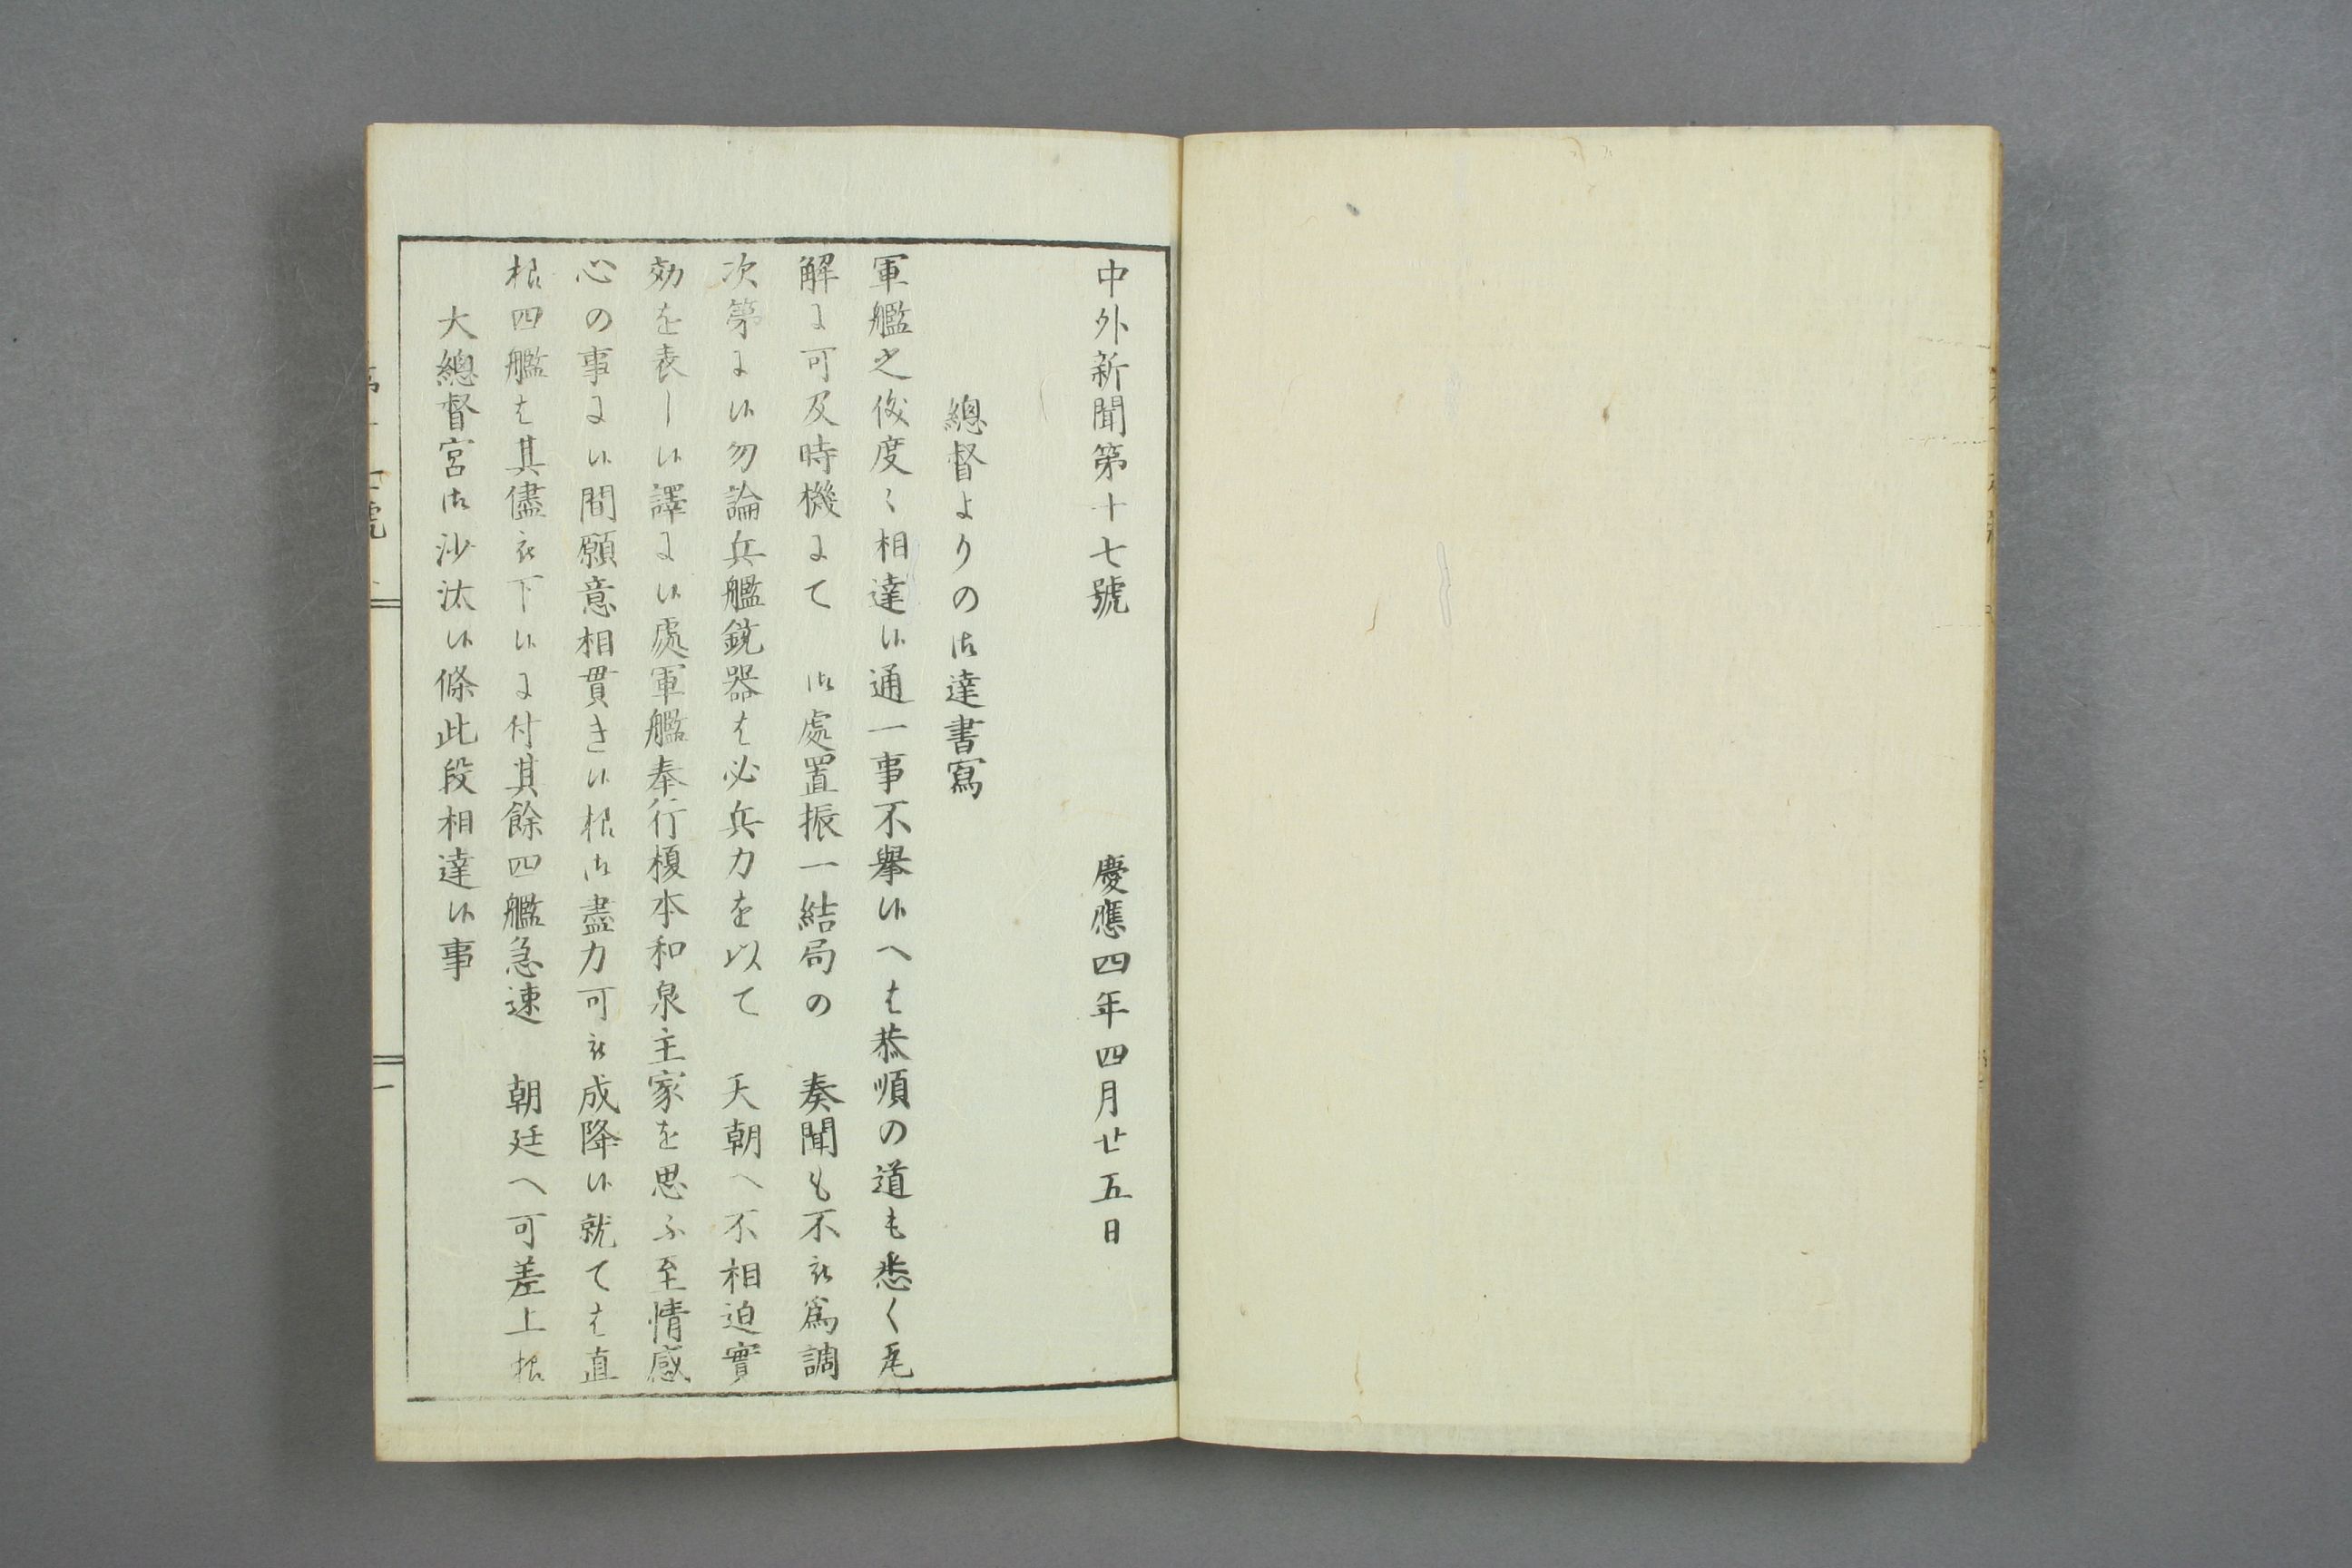 中外新聞第十七號　慶應四年四月廿五日
總督よりの御達書寫
軍艦之儀度〻相達候通一事不擧候へは恭順の道も悉く瓦
解に可及時機にて　御處置振一結局の　奏聞も不被爲調
次第に候勿論兵艦銃器は必兵力を以て　天朝へ不相迫實
効を表し候譯に候處軍艦奉行榎本和泉主家を思ふ至情感
心の事に候間願意相貫き候樣御盡力可被成降候就ては直
樣四艦は其儘被下候に付其餘四艦急速　朝廷へ可差上樣
大總督宮御沙汰候條此段相達候事
一